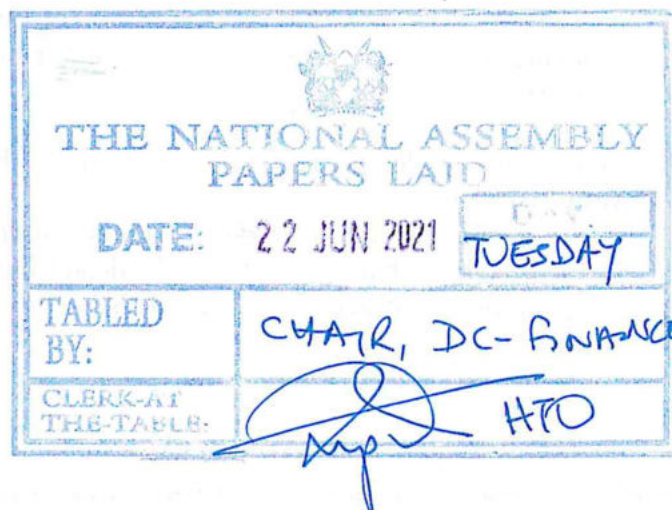 THE NATIONAL ASSEMBLY
PAPERS LAID
DATE: 22 JUN 2021
DAY
TUESDAY
TABLED BY: CHAIR, DC-FINANCE
CLERK-AT THE-TABLE: HTO